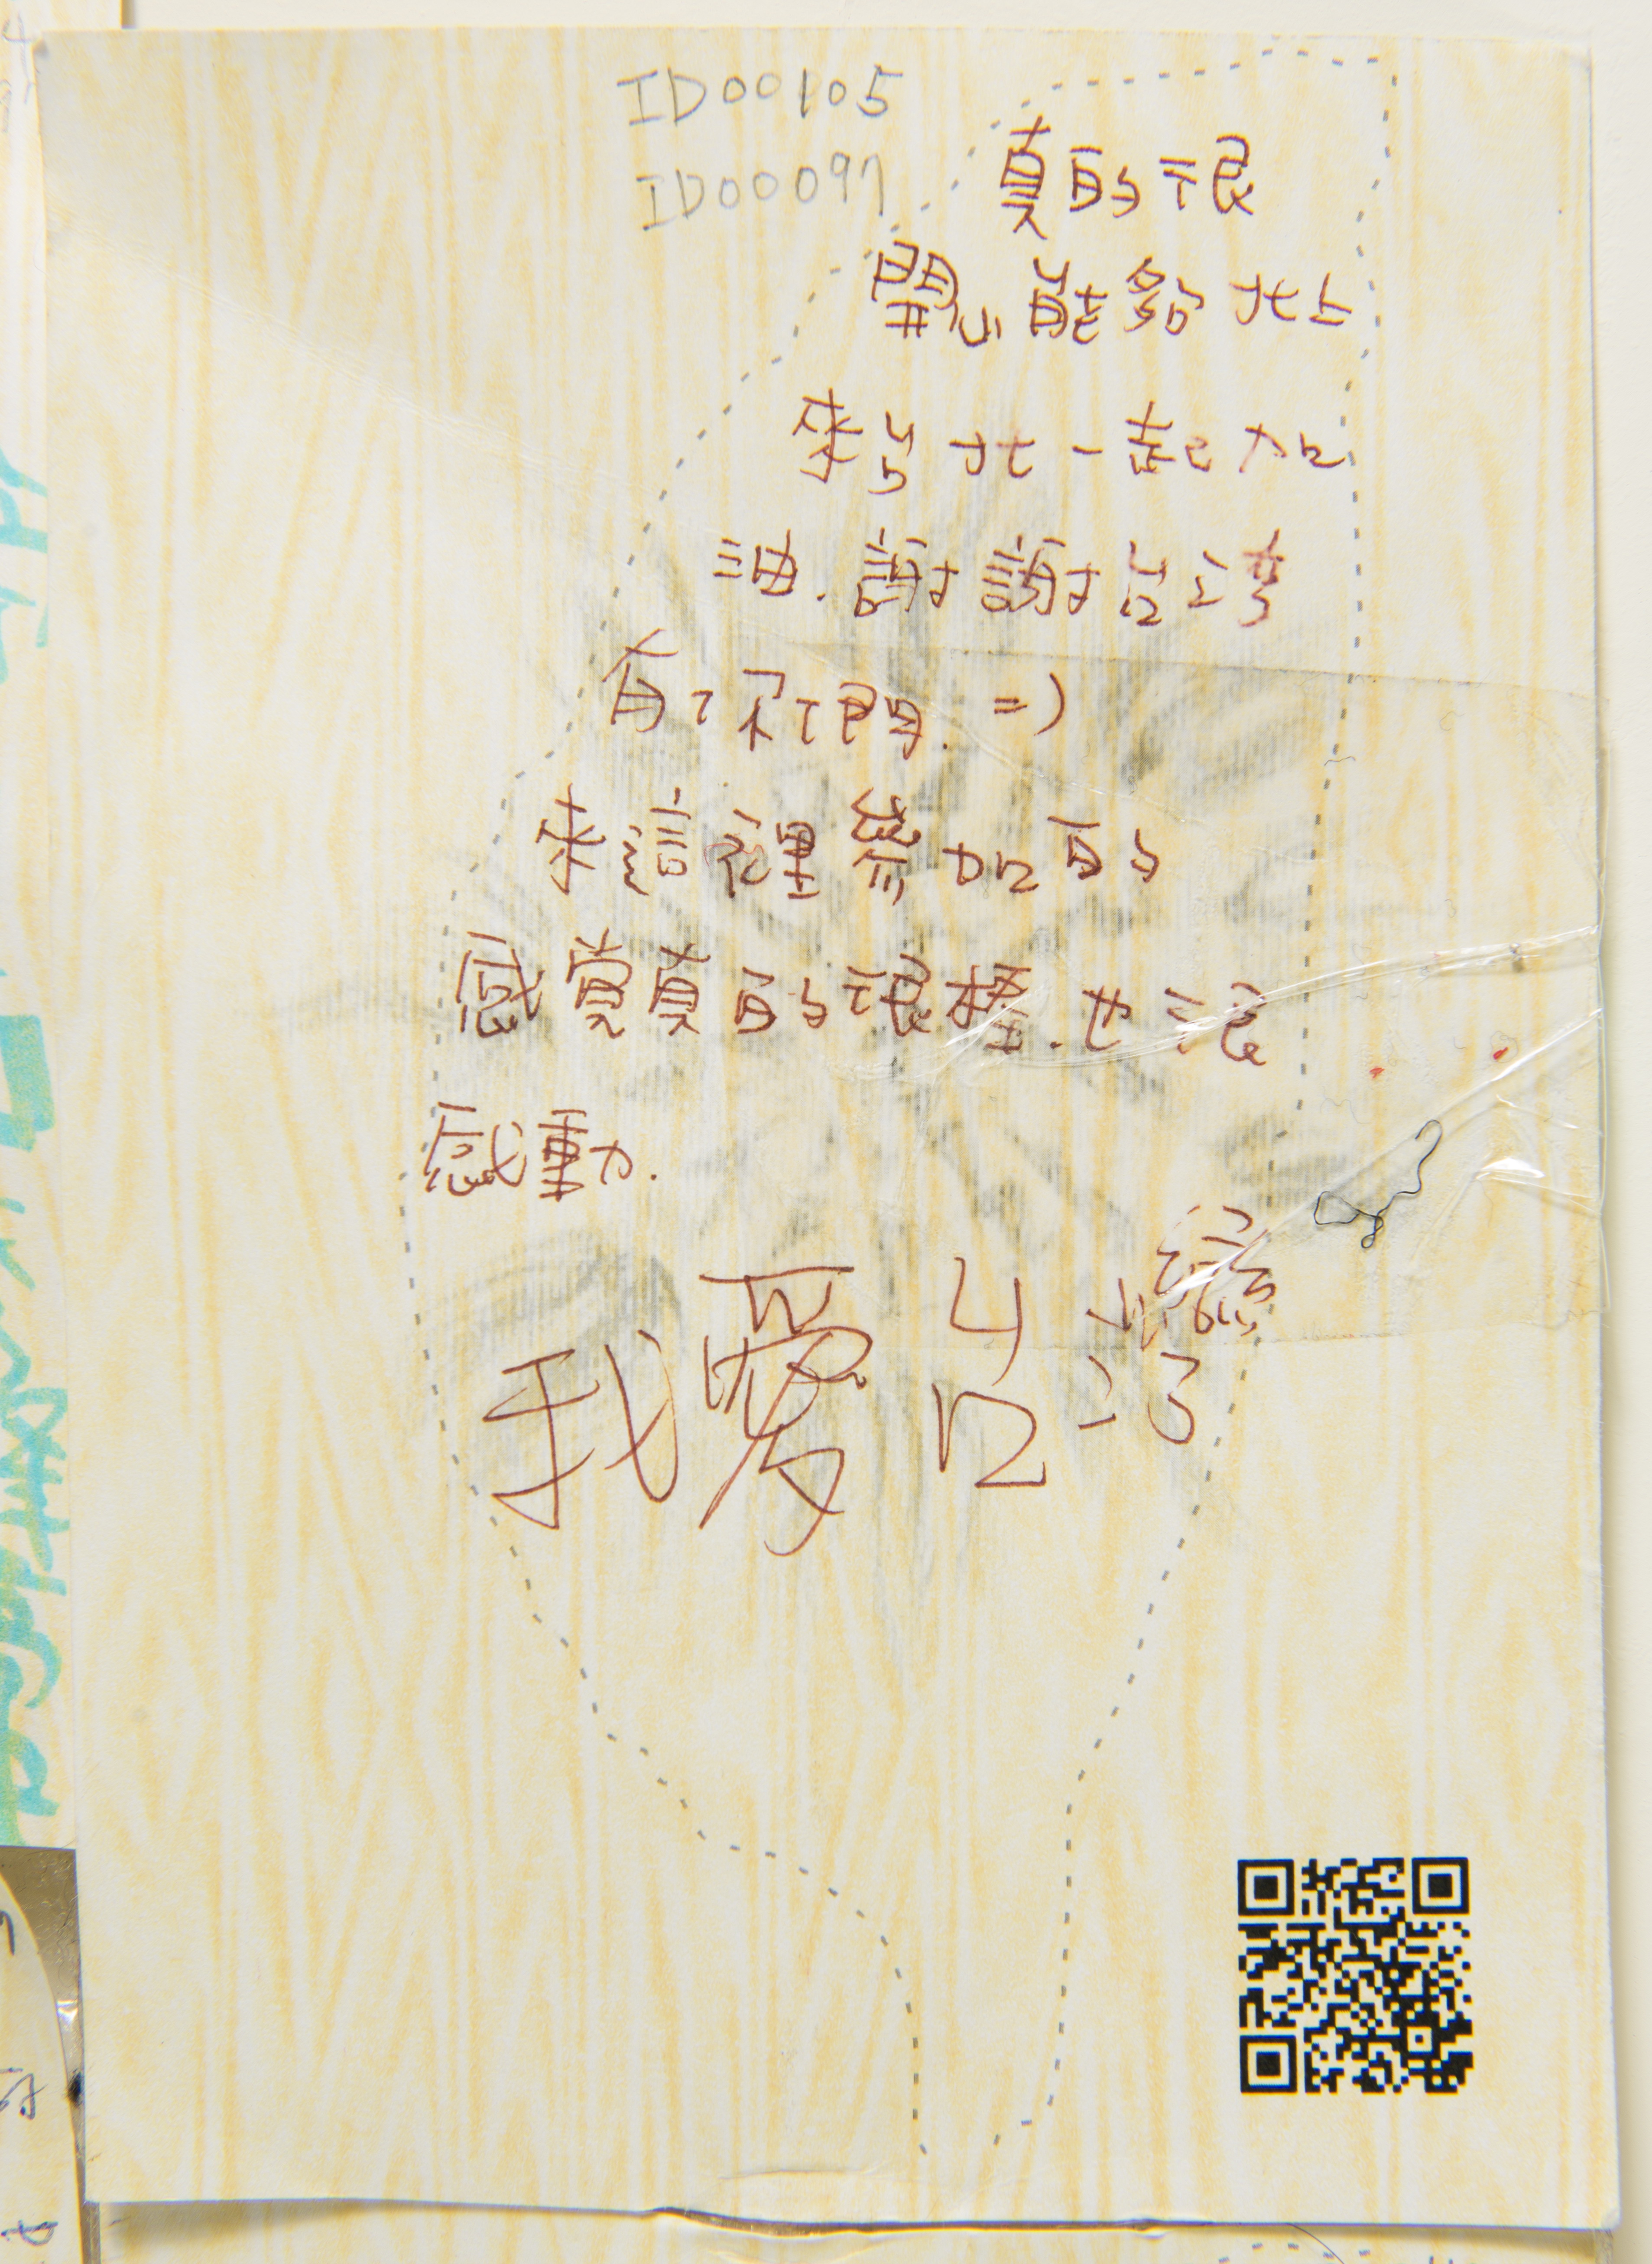 ID00105
ID00097
真的很
開心能夠北上
來台北一起加
油.謝謝台灣
有你們. =)
來這裡參加的
感覺真的很棒.也很
感動.
我愛台灣